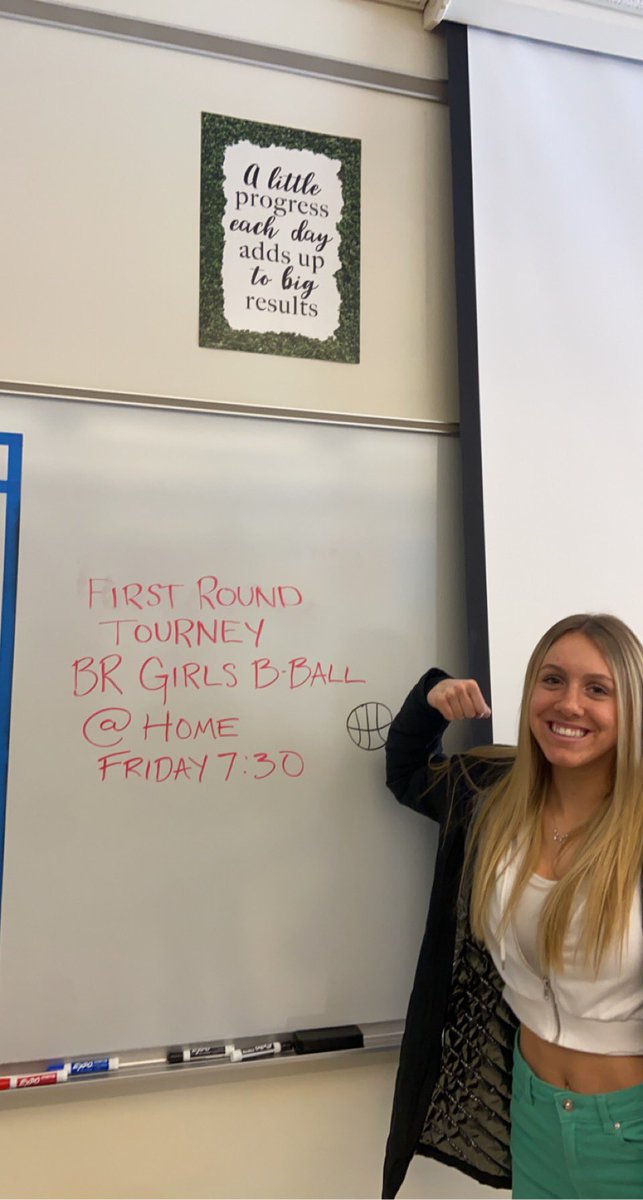 A little
progress
each day
adds up
to big
results
FIRST ROUND
TOURNEY
BR GIRLS B-BALL
@ HOME
FRIDAY 7:30
EXPO
EXPO
EXPO